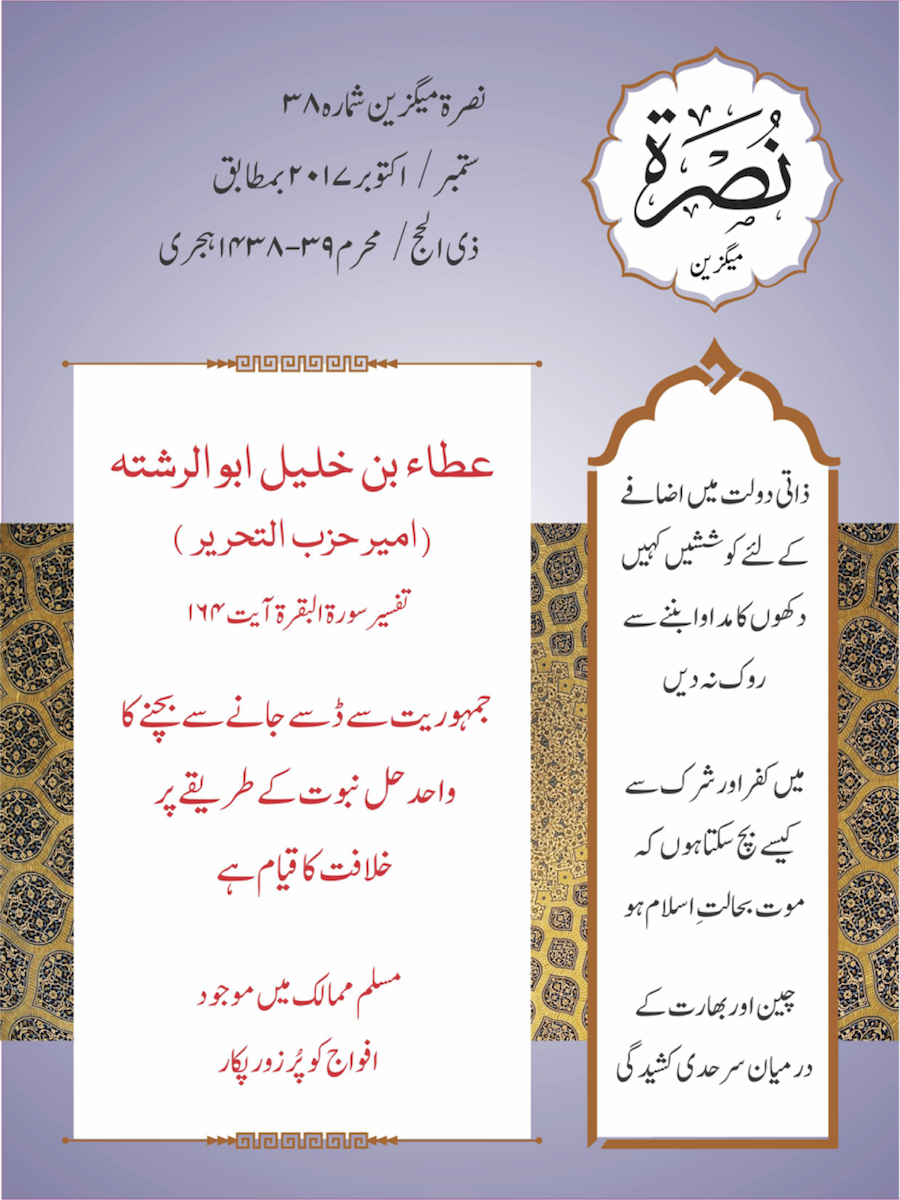 نُصرۃ
میگزین
نصرۃ میگزین شمارہ ۳۸
ستمبر / اکتوبر ۲۰۱۷ بمطابق
ذی الحج / محرم ۳۹-۱۴۳۸ ہجری
ذاتی دولت میں اضافے
کے لئے کوششیں کہیں
دکھوں کا مداوا بننے سے
روک نہ دیں
میں کفر اور شرک سے
کیسے بچ سکتا ہوں کہ
موت بحالتِ اسلام ہو
چین اور بھارت کے
درمیان سرحدی کشیدگی
عطاء بن خلیل ابو الرشتہ
(امیر حزب التحریر )
تفسیر سورۃ البقرۃ آیت ۱۶۴
جمہوریت سے ڈسے جانے سے بچنے کا
واحد حل نبوت کے طریقے پر
خلافت کا قیام ہے
مسلم ممالک میں موجود
افواج کو پُر زور پکار